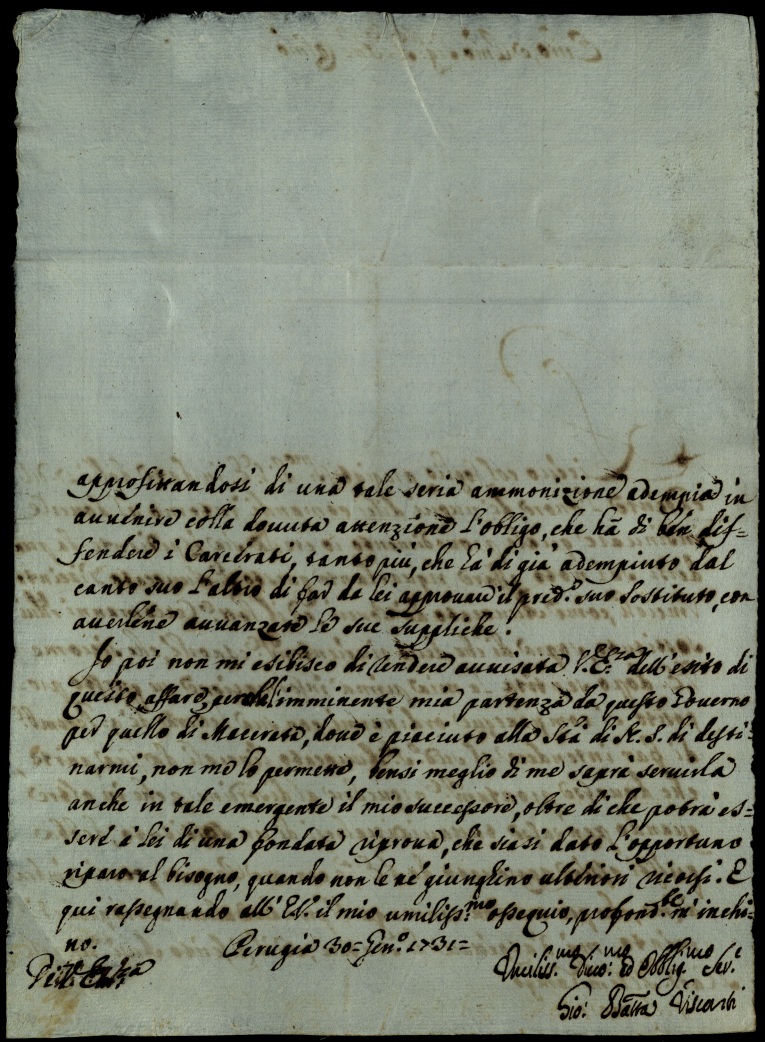 approfittandosi di una tale seria ammonizione adempia in
auuenire colla douuta attenzione l'obligo, che hà di ben dif=
fendere i Carcerati, tanto più, che hà di già adempiuto dal
canto suo l'altro di far da lei approuare il pred.º suo Sostituto, con
auerlene auuanzate le sue suppliche.
Io poi non mi esibisco di rendere auuisata V. Ecc.za dell'esito di
questo affare, perche l'imminente mia partenza da questo Gouerno
per quello di Macerata, doue è piaciuto alla Stà di N. S. di desti=
narmi, non me lo permette, bensi meglio di me saprà seruirla
anche in tale emergente il mio successore, oltre di che potrà es=
sere à lei di una fondata riproua, che siasi dato l'opportuno
riparo al bisogno, quando non le ne giunghino ulteriori ricorsi. E
qui rassegnando all'E.V. il mio umiliss.mo ossequio, profond.te m'inchi=
no.
Perugia 30= Gen.º 1731=
Umiliss.mo Diuo.mo ed Obblig.mo Ser.e
Gio: Batta Visconti